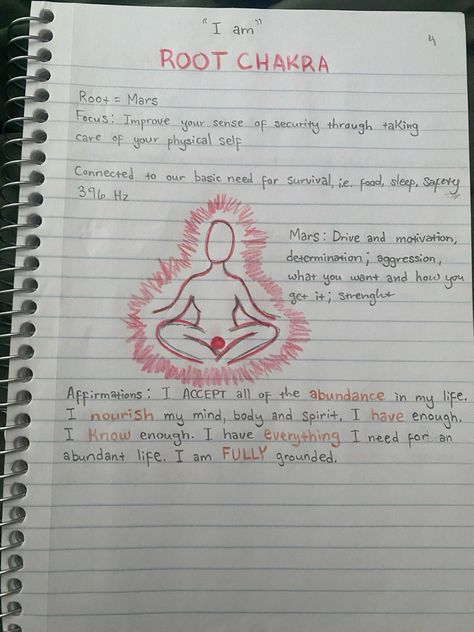 "I am"
4
ROOT CHAKRA
Root = Mars
Focus: Improve your sense of security through taking
care of your physical self
Connected to our basic need for survival, i.e. food, sleep, safety
396 Hz
Mars: Drive and motivation,
determination; aggression,
what you want and how you
get it; strenght
Affirmations: I ACCEPT all of the abundance in my life.
I nourish my mind, body and spirit. I have enough.
I know enough. I have everything I need for an
abundant life. I am FULLY grounded.